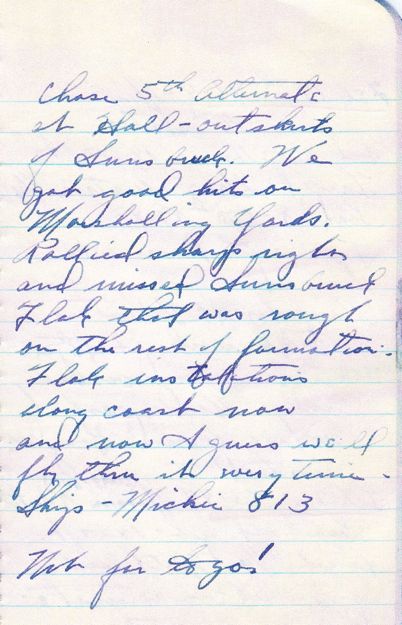 Chose 5th Alternate
at Hall - outskirts
of Innsbruck. We
got good hits on
Marshalling Yards.
Rallied sharp right
and missed Innsbruck
Flak that was rough
on the rest of formation.
Flak instaltions
along coast now
and now I guess we'll
fly thru it every time.
Ships - Mickie 813
Not for